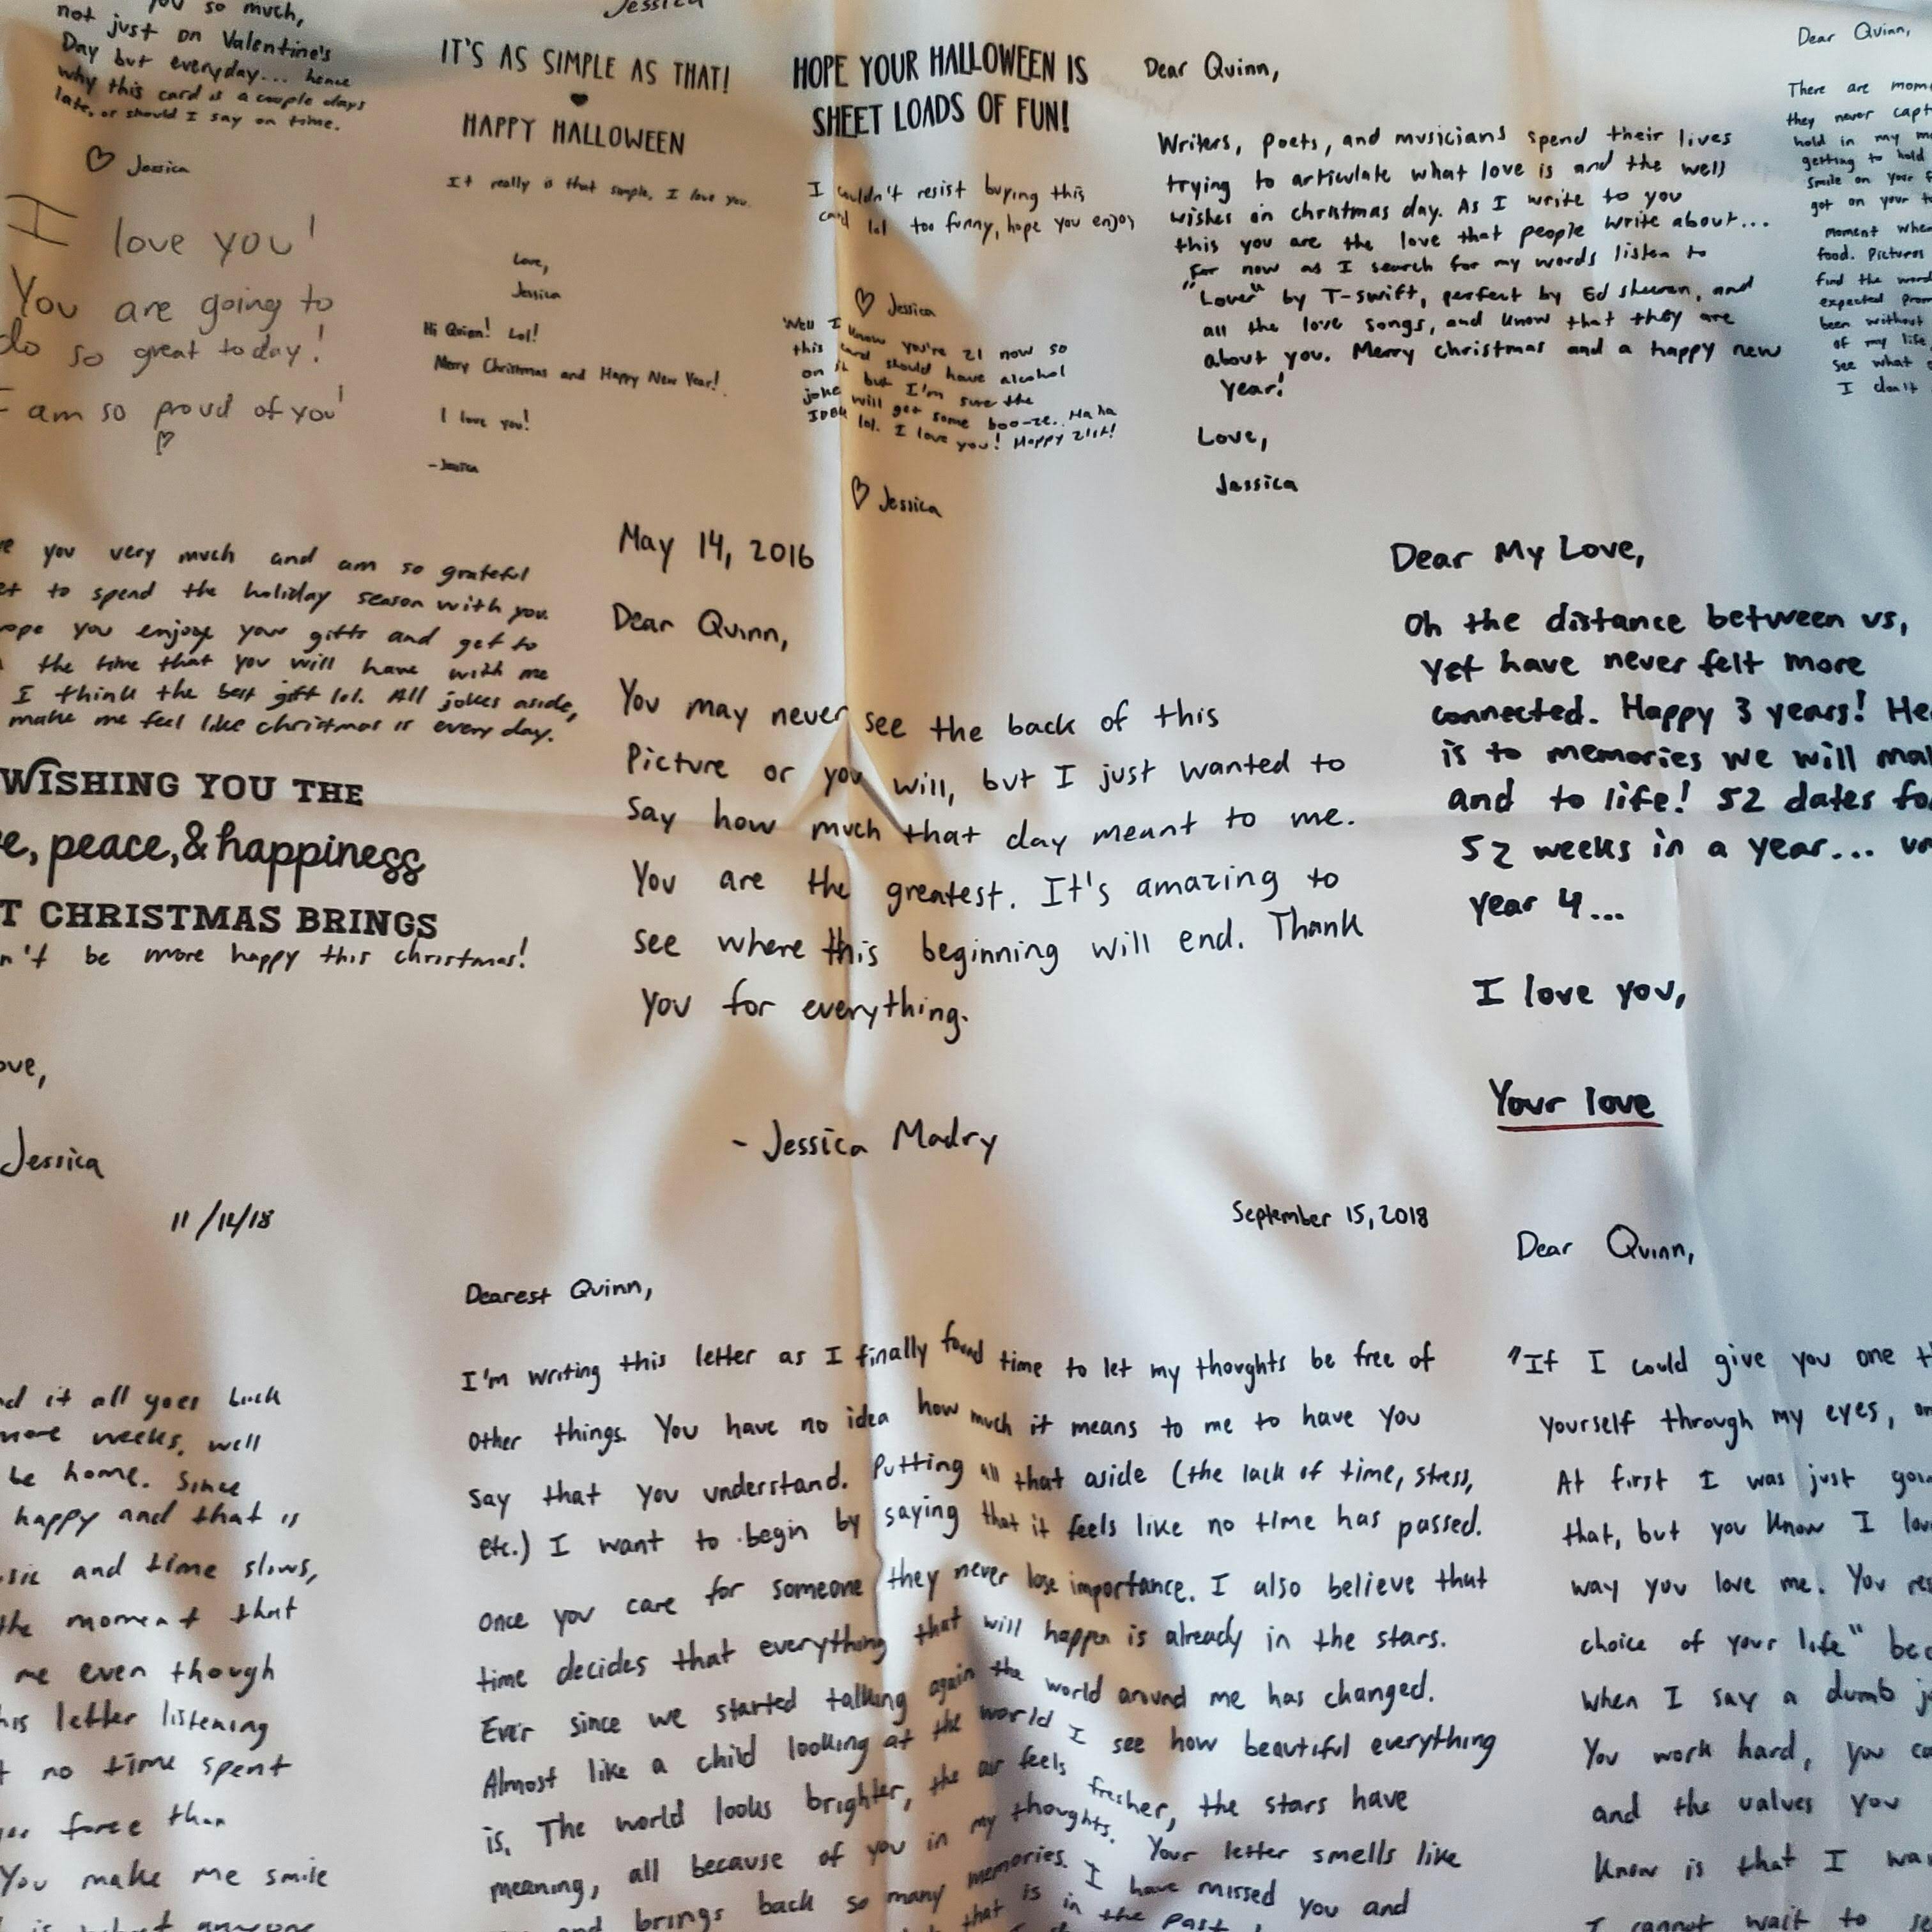 you so much,
not just on Valentine's
Day but everyday... hence
why this card is a couple days
late, or should I say on time.
♡ Jessica
I love you!
You are going to
do so great today!
I am so proud of you!
♡
Jessica
IT'S AS SIMPLE AS THAT!
♥
HAPPY HALLOWEEN
It really is that simple, I love you.
Love,
Jessica
Hi Quinn! Lol!
Merry Christmas and Happy New Year!
I love you!
-Jessica
HOPE YOUR HALLOWEEN IS
SHEET LOADS OF FUN!
I couldn't resist buying this
card lol too funny, hope you enjoy
♡ Jessica
Well I know you're 21 now so
this card should have alcohol
on it but I'm sure the
joke will get some boo-ze. Ha ha
lol. I love you! Happy 21st!
♡ Jessica
Dear Quinn,
Writers, poets, and musicians spend their lives
trying to articulate what love is and the well
wishes on christmas day. As I write to you
this you are the love that people write about...
For now as I search for my words listen to
"Lover" by T-swift, perfect by Ed sheeran, and
all the love songs, and know that they are
about you. Merry christmas and a happy new
year!
Love,
Jessica
Dear Quinn,
There are mom
they never capt
hold in my m
getting to hold
smile on your f
got on your
moment whe
food. Pictures
find the word
expected prom
been without
of my life
see what
I don't
you very much and am so grateful
to spend the holiday season with you.
you enjoye your gifts and get to
the time that you will have with me
I think the best gift lol. All jokes aside,
make me feel like christmas is every day.
WISHING YOU THE
e, peace, & happiness
T CHRISTMAS BRINGS
n't be more happy this christmas!
ove,
Jessica
May 14, 2016
Dear Quinn,
You may never see the back of this
Picture or you will, but I just wanted to
say how much that day meant to me.
You are the greatest. It's amazing to
see where this beginning will end. Thank
you for everything.
- Jessica Madry
Dear My Love,
Oh the distance between us,
yet have never felt more
connected. Happy 3 years! He
is to memories we will ma
and to life! 52 dates fo
52 weeks in a year...
year 4...
I love you,
Your love
11/12/18
d it all goes back
more weeks, well
be home. Since
happy and that is
sic and time slows,
the moment that
me even though
his letter listening
no time spent
force than
You make me smile
is what anyone
September 15, 2018
Dearest Quinn,
I'm writing this letter as I finally found time to let my thoughts be free of
other things. You have no idea how much it means to me to have you
say that you understand. Putting all that aside (the lack of time, stress,
etc.) I want to begin by saying that it feels like no time has passed.
Once you care for someone they never lose importance. I also believe that
time decides that everything that will happen is already in the stars.
Ever since we started talking again the world around me has changed.
Almost like a child looking at the world I see how beautiful everything
is. The world looks brighter, the air feels fresher, the stars have
meaning, all because of you in my thoughts. Your letter smells like
and brings back so many memories. I have missed you and
that is in the past
Dear Quinn,
"If I could give you one t
yourself through my eyes,
At first I was just goi
that, but you know I lov
way you love me. You re
choice of your life" bec
when I say a dumb j
You work hard, you ca
and the values you
know is that I wa
I cannot wait to